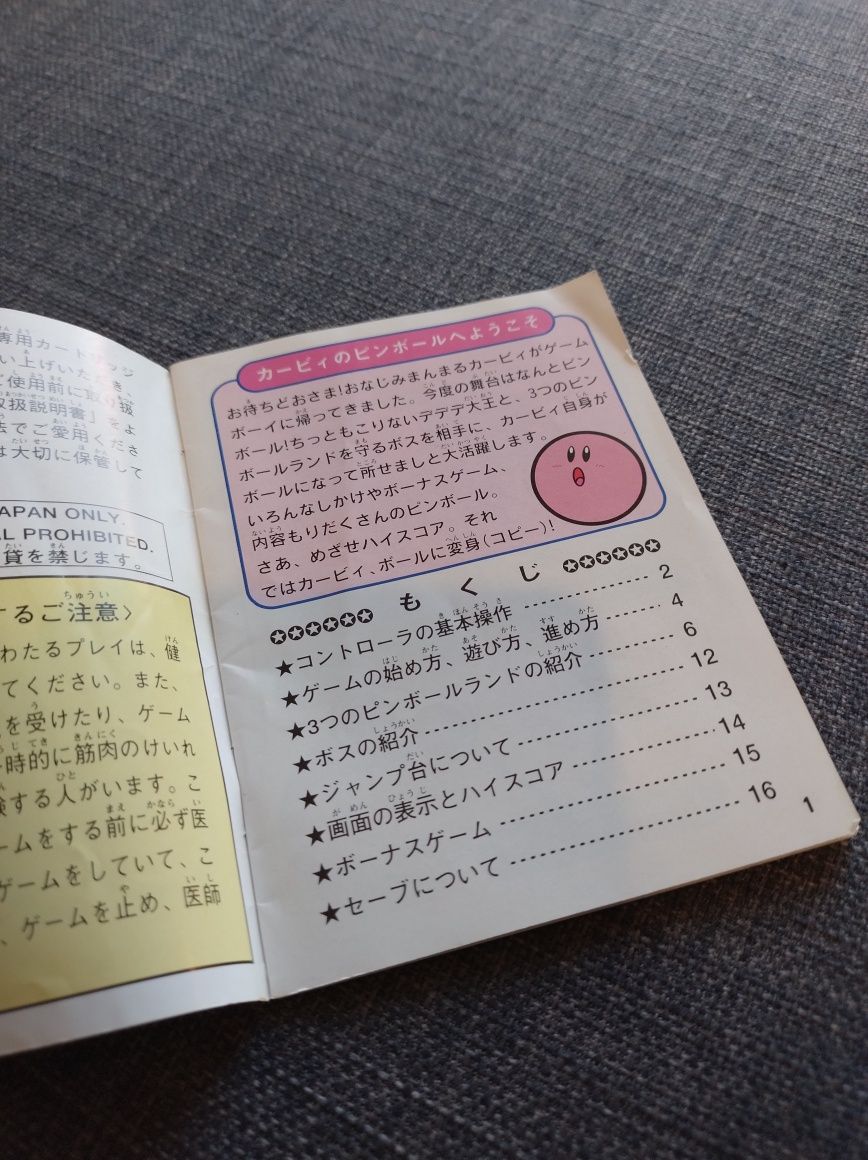 専用カートリッジ
い上げいただき、
ご使用前に取り扱
取扱説明書」をよ
法でご愛用くださ
は大切に保管して
APAN ONLY.
L PROHIBITED.
貸を禁じます。
するご注意〉
わたるプレイは、健
てください。また、
を受けたり、ゲーム
時的に筋肉のけいれ
験する人がいます。こ
ームをする前に必ず医
ゲームをしていて、こ
、ゲームを止め、医師
カービィのピンボールへようこそ
お待ちどおさま!おなじみまんまるカービィがゲーム
ボーイに帰ってきました。今度の舞台はなんとピン
ボール!ちっともこりないデデデ大王と、3つのピン
ボールランドを守るボスを相手に、カービィ自身が
ボールになって所せましと大活躍します。
いろんなしかけやボーナスゲーム、
内容もりだくさんのピンボール。
さあ、めざせハイスコア。それ
ではカービィ、ボールに変身(コピー)!
✪✪✪✪✪✪ もくじ ✪✪✪✪✪✪
★コントローラの基本操作 2
★ゲームの始め方、遊び方、進め方 4
★3つのピンボールランドの紹介 6
★ボスの紹介 12
★ジャンプ台について 13
★画面の表示とハイスコア 14
★ボーナスゲーム 15
★セーブについて 16
1